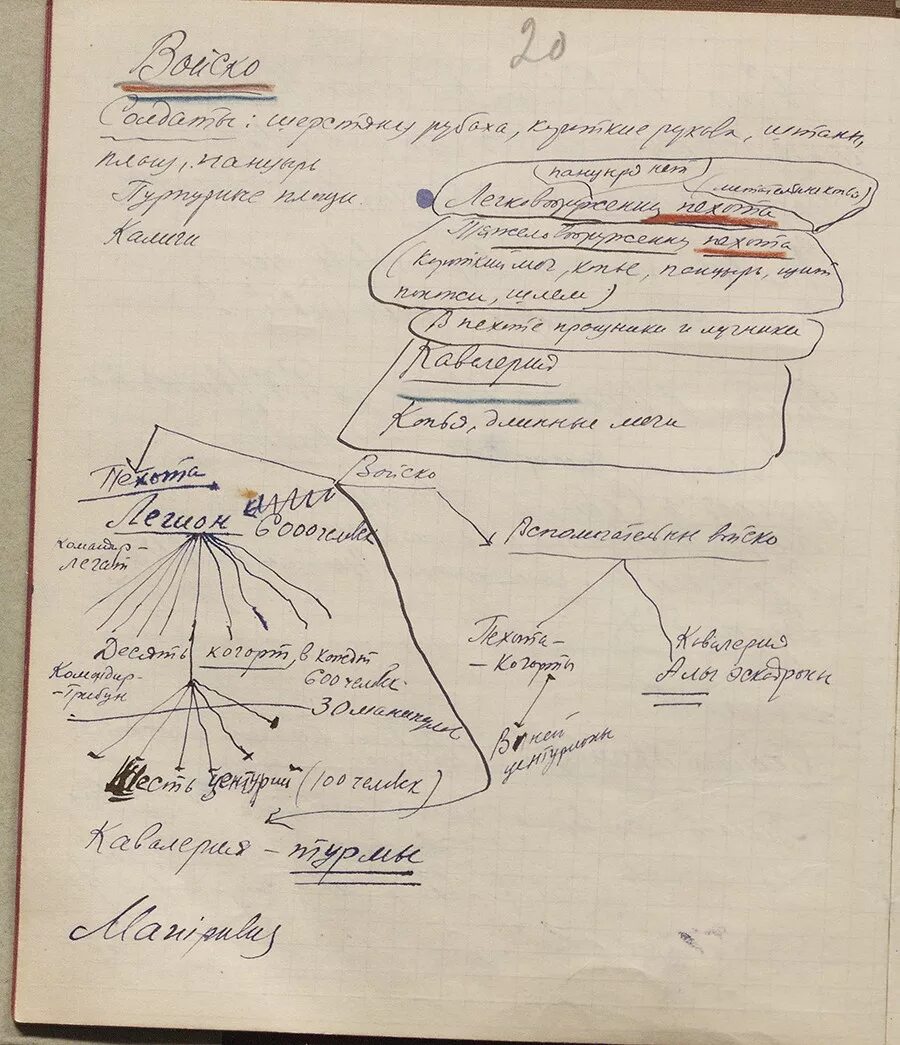 20
Войско
Солдаты: шерстяну рубаха, короткие рукова, штаны,
плащ, панцырь
Пурпурные плащи.
Калиги
панцыря нет
(метательные копья)
Легковооруженну пехота
Тяжеловооруженну пехота
(Короткий меч, копье, панцырь, щит
поножи, шлем)
В пехоте пращники и лучники
Кавалерия
Копья, длинные мечи
Войско
Пехота
Легион 6000 человек
командир-
легат
Вспомогательны войско
Десять когорт, в кождт
600 человек.
Командир-
-трибун
30 манипулов
Шесть центурий (100 человек)
Пехота-
-Когорты
В ней
центурионы
Кавалерия
Алы эскадроны
Кавалерия - турмы